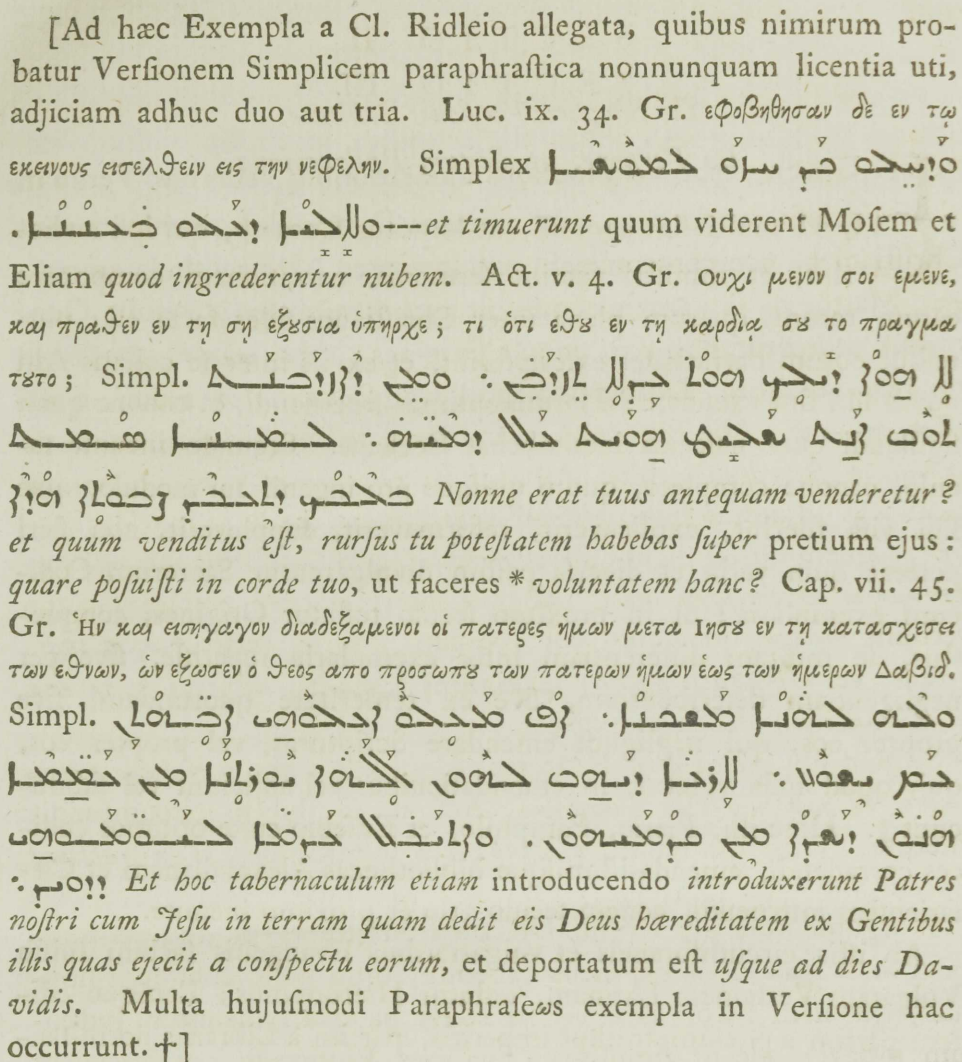 [Ad hæc Exempla a Cl. Ridleio allegata, quibus nimirum pro-
batur Verſionem Simplicem paraphraſtica nonnunquam licentia uti,
adjiciam adhuc duo aut tria. Luc. ix. 34. Gr. εφοβηθησαν δε εν τῳ
εκεινους εισελθειν εις την νεφελην. Simplex ܘܕܚܠܘ ܟܕ ܚܙܘ ܠܡܘܫܐ
ܘܠܐܠܝܐ ܕܥܠܘ ܒܥܢܢܐ.---et timuerunt quum viderent Moſem et
Eliam quod ingrederentur nubem. Act. v. 4. Gr. Ουχι μενον σοι εμενε,
και πραθεν εν τη ση εξȣσια ὑπηρχε; τι ὁτι εθȣ εν τη καρδιᾳ σȣ το πραγμα
τȣτο; Simpl. ܠܐ ܗܘܐ ܕܝܠܟ ܗܘܬ ܥܕܠܐ ܬܙܕܒܢ܆ ܘܡܢ ܕܐܙܕܒܢܬ
ܬܘܒ ܐܢܬ ܫܠܝܛ ܗܘܝܬ ܥܠ ܕܡܝ̈ܗ܆ ܠܡܢܐ ܣܡܬ
ܒܠܒܟ ܕܬܥܒܕ ܨܒܘܬܐ ܗܕܐ Nonne erat tuus antequam venderetur?
et quum venditus eſt, rurſus tu poteſtatem habebas ſuper pretium ejus:
quare poſuiſti in corde tuo, ut faceres * voluntatem hanc? Cap. vii. 45.
Gr. Ἡν και εισηγαγον διαδεξαμενοι οἱ πατερες ἡμων μετα Ιησȣ εν τη κατασχεσει
των εθνων, ὡν εξωσεν ὁ θεος απο προσωπȣ των πατερων ἡμων ἑως των ἡμερων Δαβιδ.
Simpl. ܘܠܗ ܠܗܢܐ ܡܫܟܢܐ܆ ܐܦ ܡܥܠܘ ܐܥܠܘܗܝ ܐܒ̈ܗܬܢ
ܥܡ ܝܫܘܥ܆ ܠܐܪܥܐ ܕܝܗܒ ܠܗܘܢ ܐܠܗܐ ܝܘܪܬܢܐ ܡܢ ܥܡ̈ܡܐ
ܗܢܘܢ ܕܫܕܐ ܡܢ ܩܕܡܝܗܘܢ. ܘܐܬܝܒܠ ܥܕܡܐ ܠܝܘ̈ܡܬܘܗܝ
ܕܕܘܝܕ܆ Et hoc tabernaculum etiam introducendo introduxerunt Patres
noſtri cum Jeſu in terram quam dedit eis Deus hæreditatem ex Gentibus
illis quas ejecit a conſpectu eorum, et deportatum eſt uſque ad dies Da-
vidis. Multa hujuſmodi Paraphraſeως exempla in Verſione hac
occurrunt. ☩]